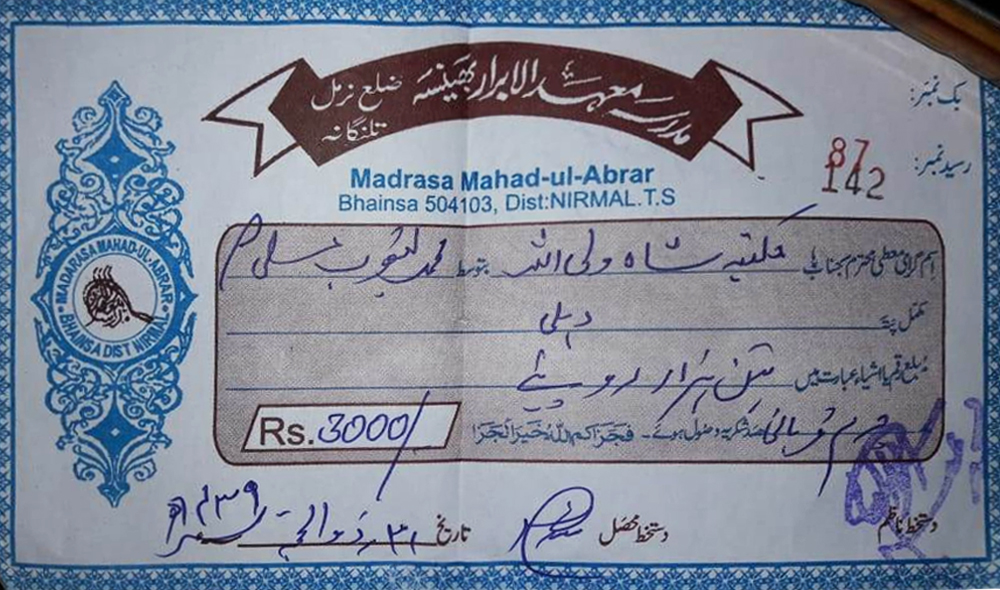 مدرسہ معہد الابرار بھینسہ ضلع نرمل
تلنگانہ
بک نمبر:
رسید نمبر: 87
142
Madrasa Mahad-ul-Abrar
Bhainsa 504103, Dist:NIRMAL.T.S
MADARASA MAHAD-UL-ABRAR
BHAINSA DIST NIRMAL
اسم گرامی معطی محترم جناب مکتبہ شاہ ولی اللہ بتوسط محمد ایوب
مکمل پتہ دہلی
مبلغ رقم یا اشیاء عبارت میں تین ہزار روپئے
بصد شکریہ وصول ہوئے۔ فجزاکم اللہ خیر الجزا
Rs. 3000/
تاریخ ذوالحجہ ۱۴۳۹
دستخط محصل
دستخط ناظم